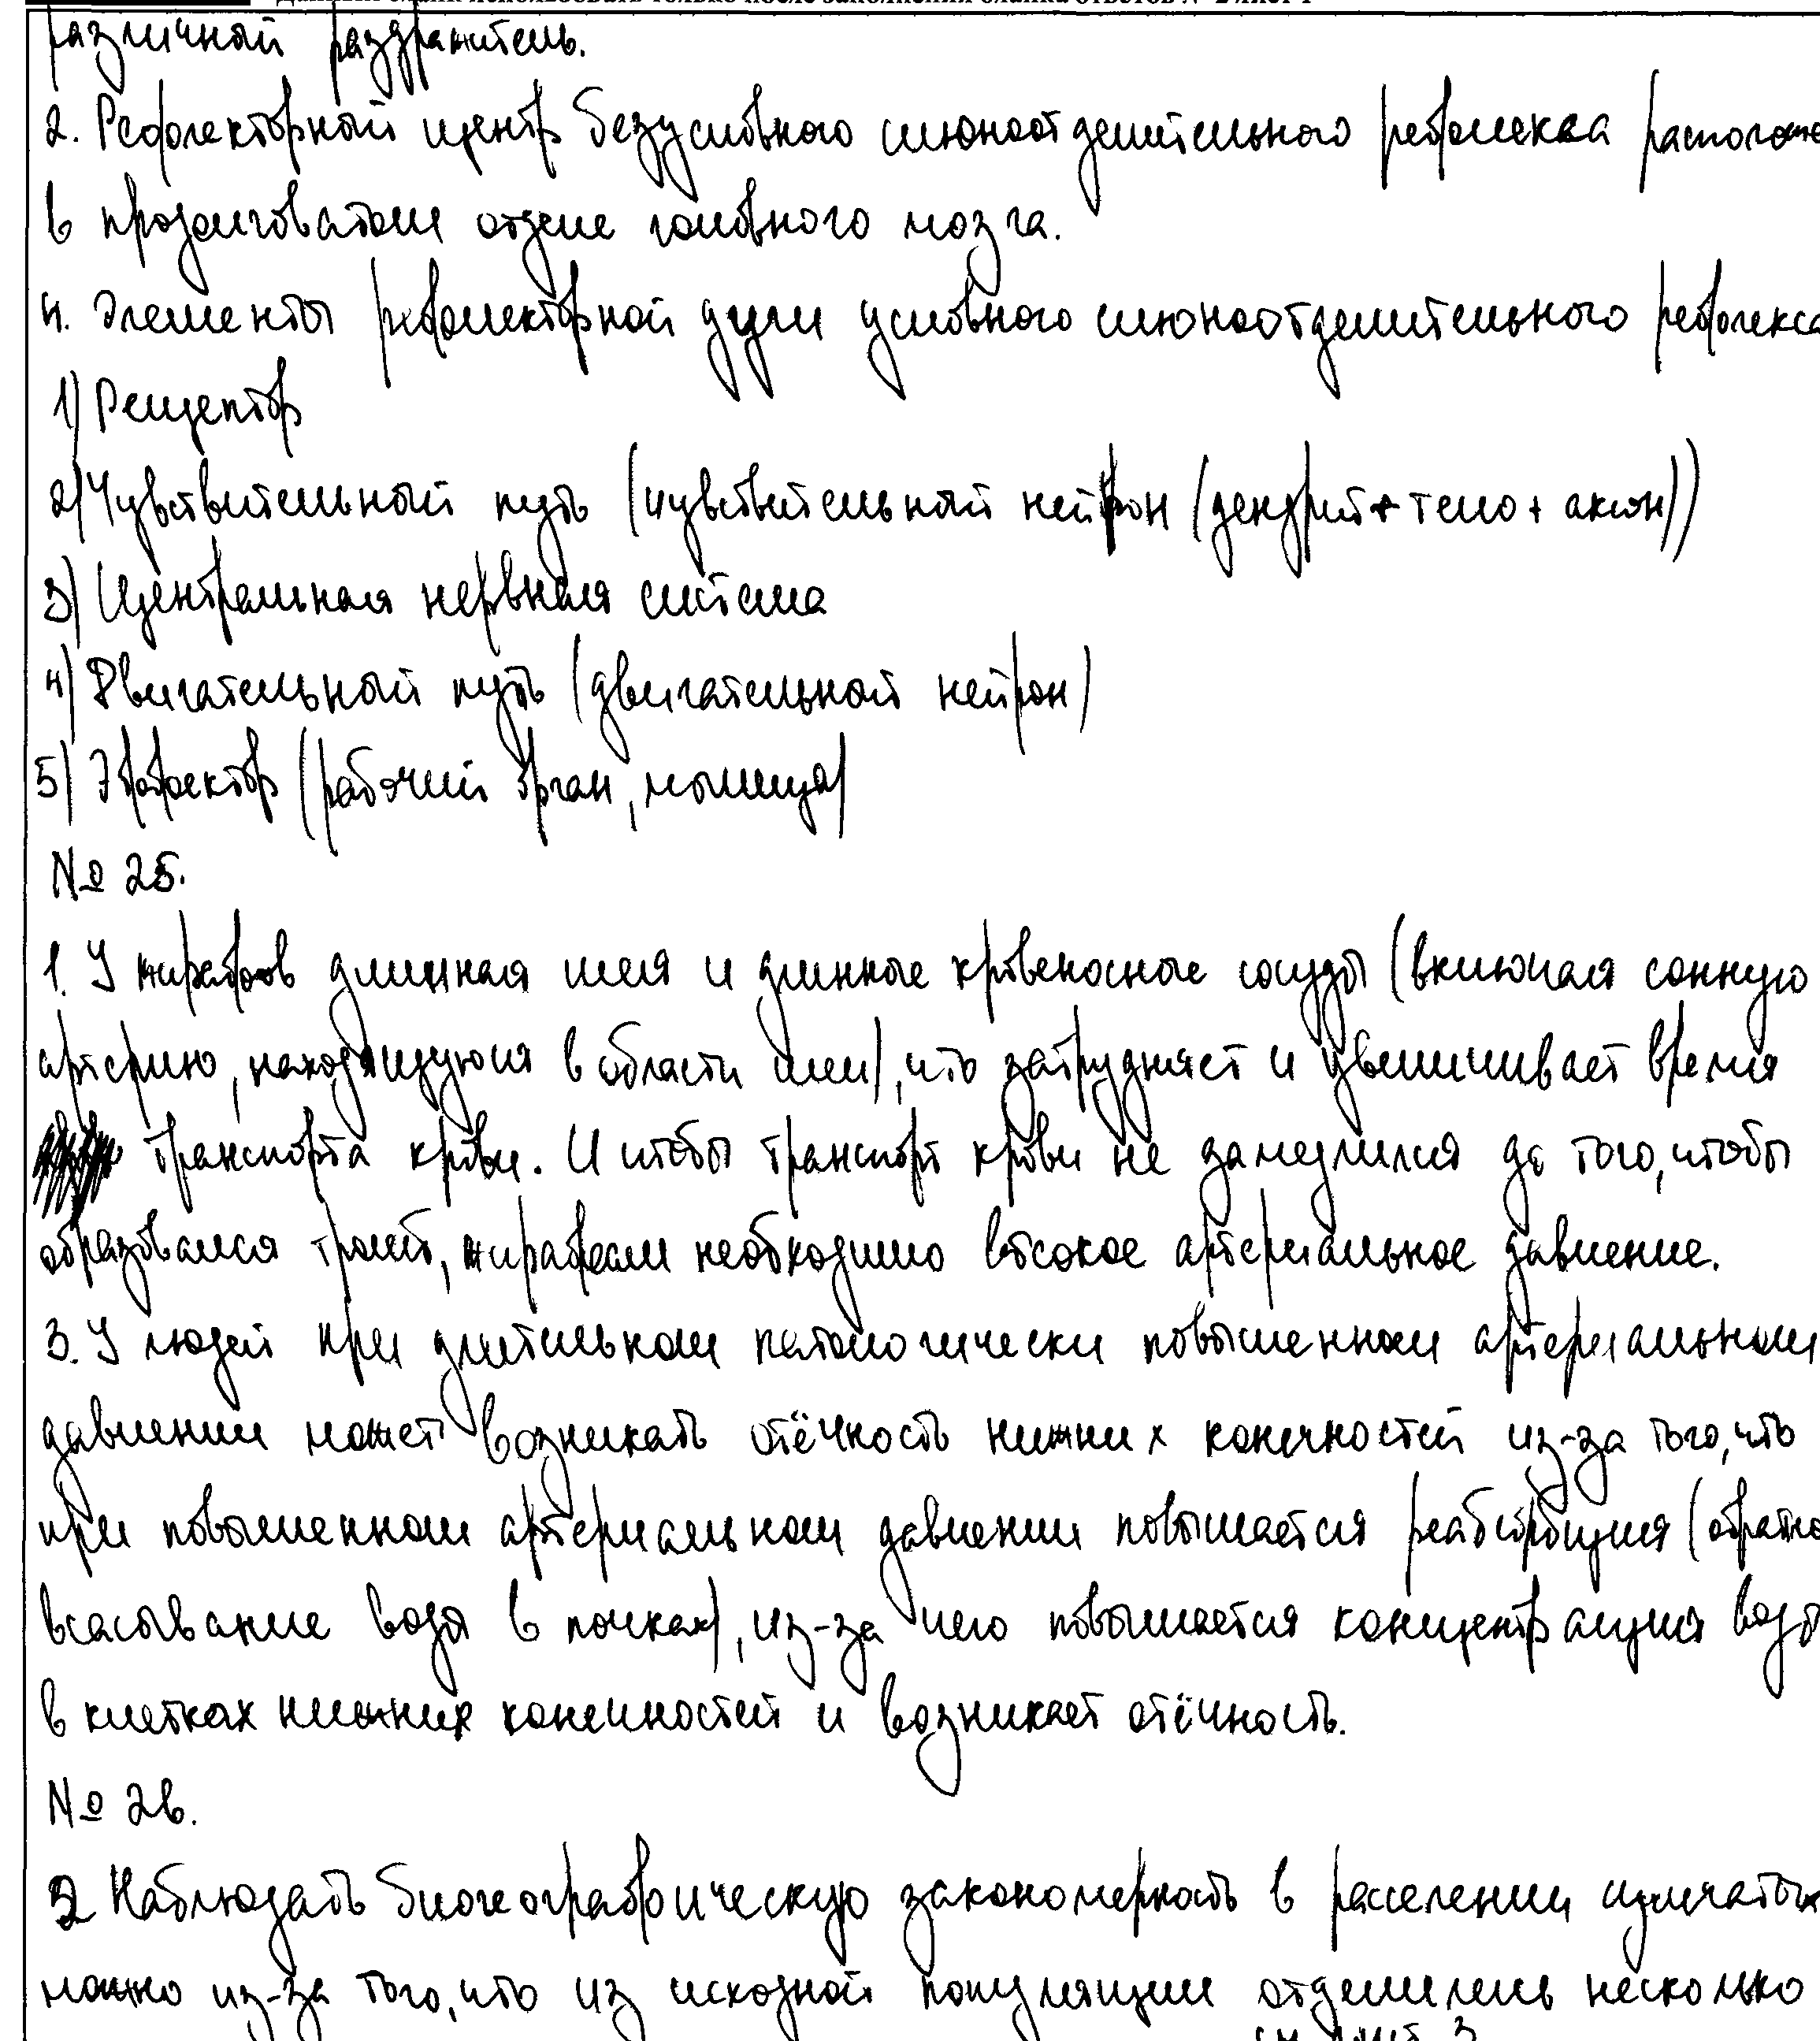 различный раздражитель.
2. Рефлекторный центр безусловного слюноотделительного рефлекса располож
в продолговатом отделе головного мозга.
4. Элементы рефлекторной дуги условного слюноотделительного рефлекса
1) Рецептор
2) Чувствительный путь (чувствительный нейрон (дендрит + тело + аксон))
3) Центральная нервная система
4) Двигательный путь (двигательный нейрон)
5) Эффектор (рабочий орган, мышца)
№ 25.
1. У жирафов длинная шея и длинные кровеносные сосуды (включая сонную
артерию, находящуюся в области шеи), что затрудняет и увеличивает время
транспорта крови. И чтобы транспорт крови не замедлился до того, чтобы
образовался тромб, жирафам необходимо высокое артериальное давление.
3. У людей при длительном патологически повышенном артериальном
давлении может возникать отёчность нижних конечностей из-за того, что
при повышенном артериальном давлении повышается реабсорбция (обратно
всасывание воды в почках), из-за чего повышается концентрация воды
в клетках нижних конечностей и возникает отёчность.
№ 26.
2 Наблюдать биогеографическую закономерность в расселении
можно из-за того, что из исходной популяции отделились несколько
см. лист 3